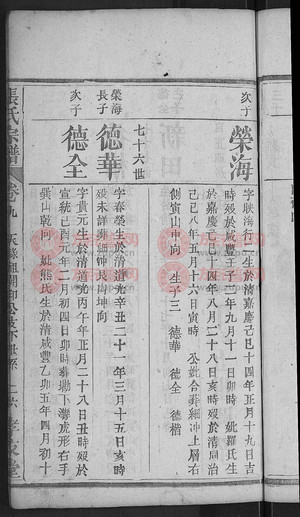 次子
榮海
字朕海行二生於清嘉慶己巳十四年正月十九日吉
時殁於咸豐壬子二年九月十一日卯時 妣羅氏生
於嘉慶己巳十四年八月二十八日亥時殁於清同治
己巳八年五月十六日寅時 公妣合葬細冲上屠右
側寅山申向 生子三 德華 德全 德楷
七十六世
榮海長子
德華
字春發生於清道光辛丑二十一年三月十五日亥時
殁未詳葬細冲長山坤向
次子
德全
字貴元生於清道光丙午年正月二十八日丑時殁於
宣統己酉元年二月初四日卯時葬塘下灣虎形右手
巽山乾向 妣熊氏生於清咸豐乙卯五年四月初十
張氏宗譜
卷九
六